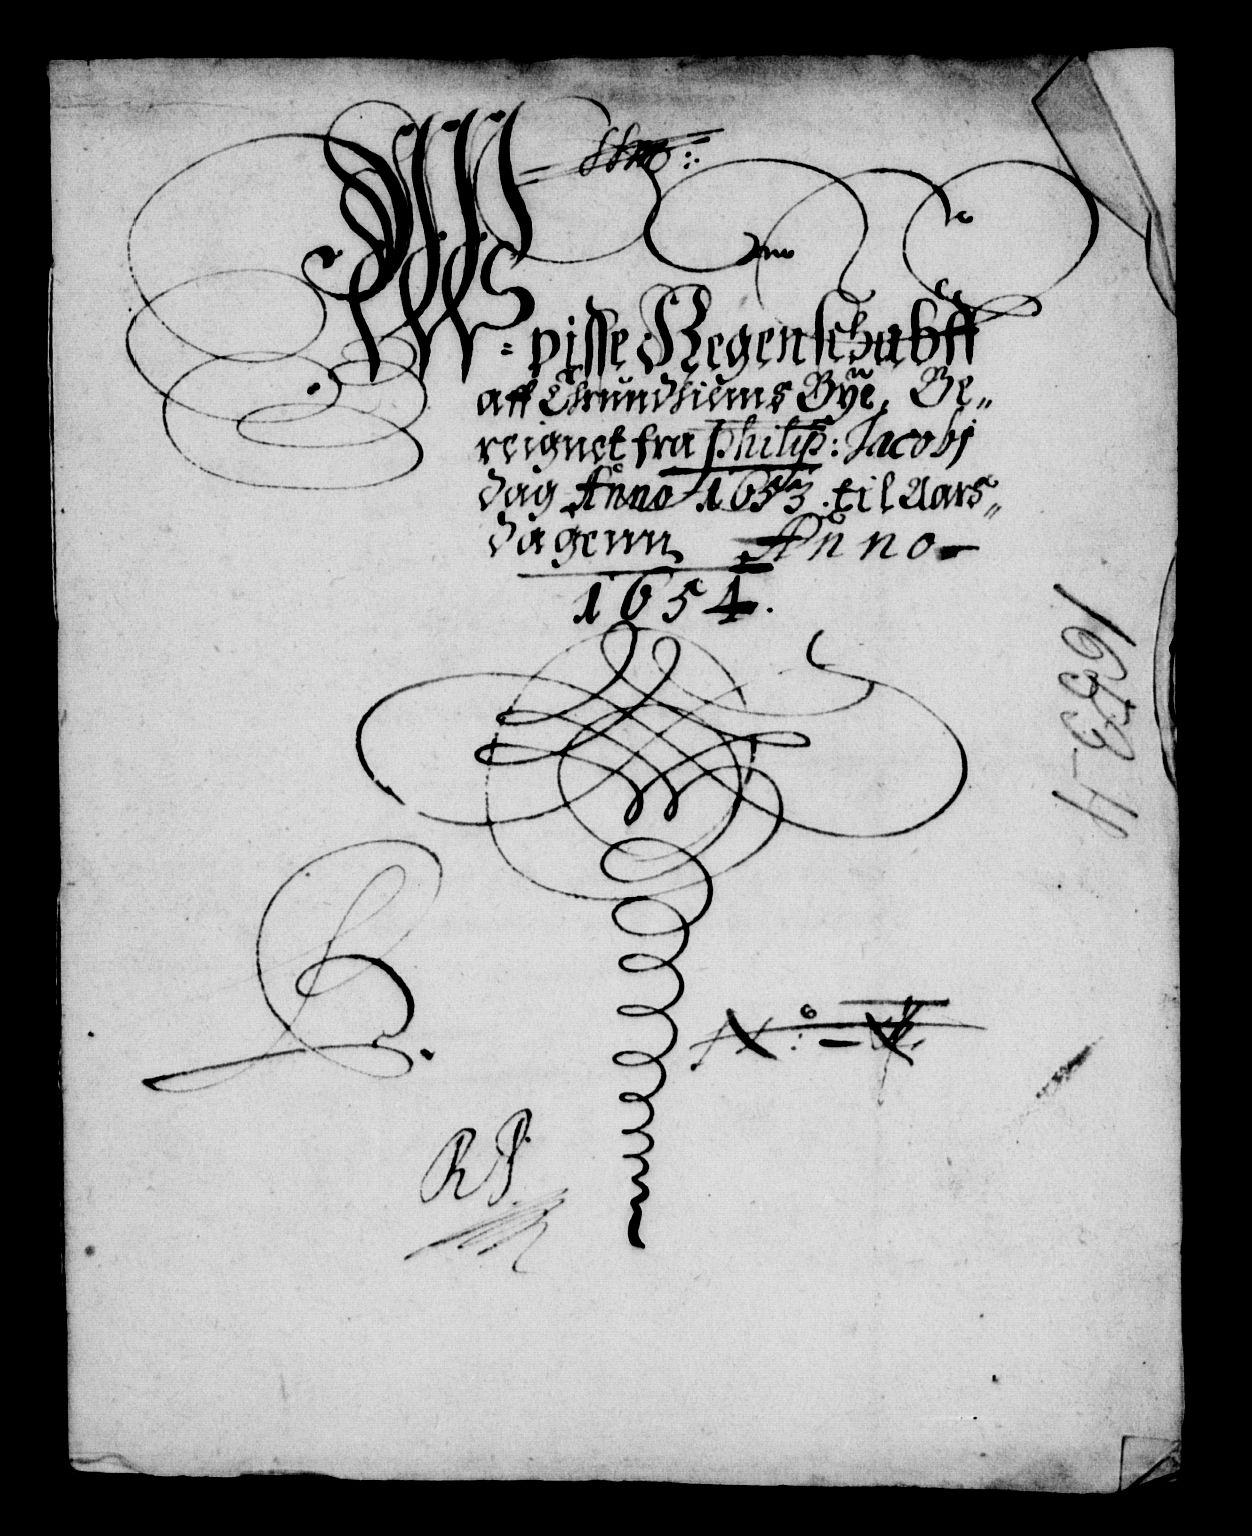 W
=pisse Regenschabff
aff Thrundhiems Bÿe, Be„
reignet fra Philip: Jacobj
dag Anno 1653. til Aars„
dagenn Anno
1654.
1653-4
N:o
R P